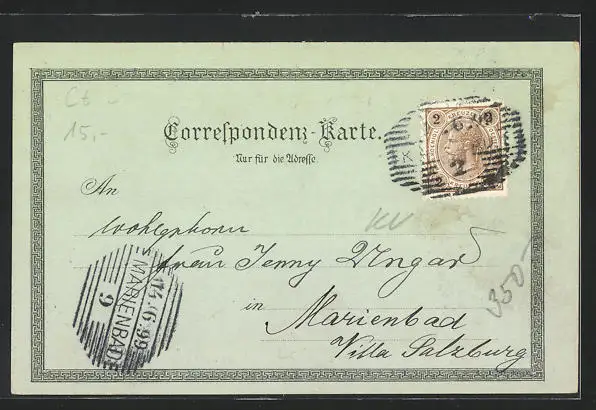 Ct -
15,-
Correspondenz-Karte.
Nur für die Adresse.
2 KREUZER 2
6.
2
An
Wohlgeborn
Frau Jenny Ungar
in
Marienbad
Villa Salzburg
KV
350,-
14.6.99
MARIENBAD
9